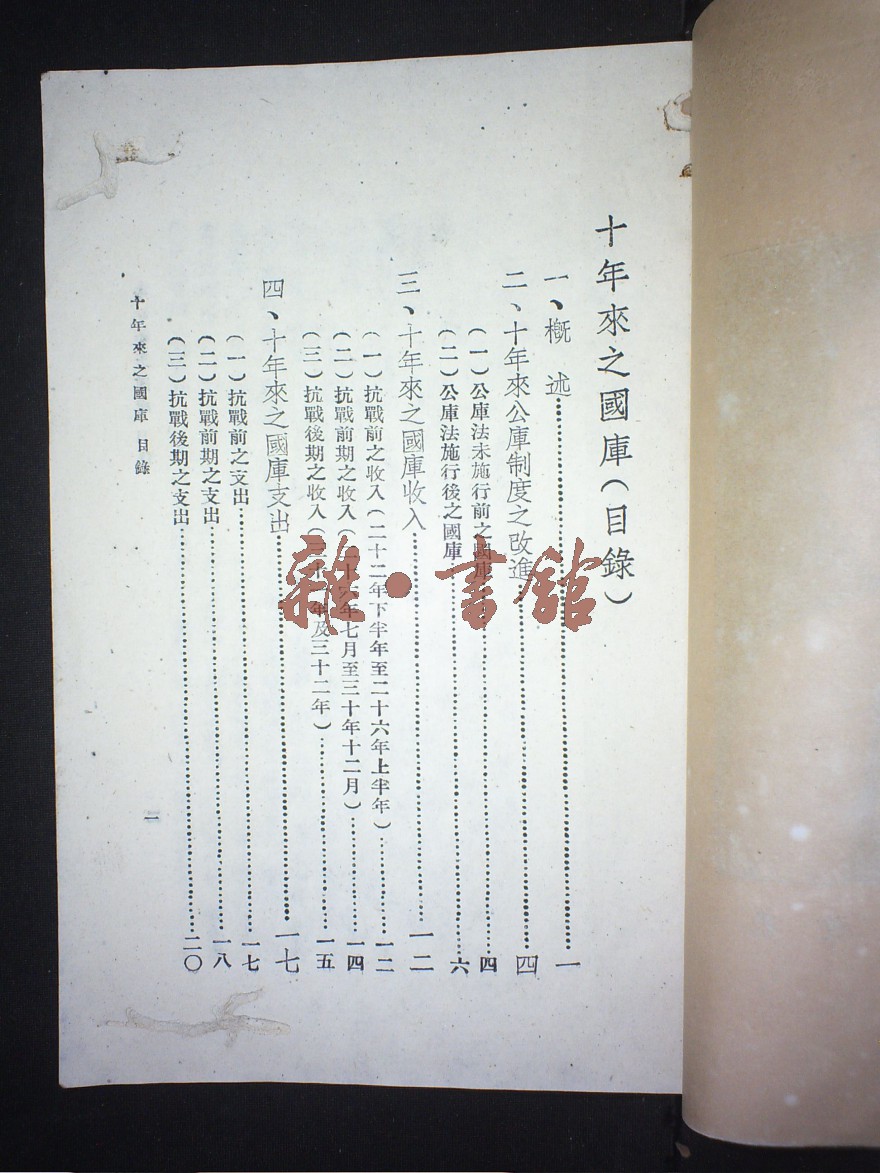 十年來之國庫（目錄）
一、概述⋯⋯⋯⋯⋯⋯⋯⋯⋯⋯一
二、十年來公庫制度之改進⋯⋯⋯⋯⋯⋯四
（一）公庫法未施行前之國庫⋯⋯⋯⋯⋯⋯四
（二）公庫法施行後之國庫⋯⋯⋯⋯⋯⋯六
三、十年來之國庫收入⋯⋯⋯⋯⋯⋯一二
（一）抗戰前之收入（二十二年下半年至二十六年上半年）⋯⋯一二
（二）抗戰前期之收入（二十六年七月至三十年十二月）⋯⋯一四
（三）抗戰後期之收入（三十一年及三十二年）⋯⋯⋯一五
四、十年來之國庫支出⋯⋯⋯⋯⋯⋯一七
（一）抗戰前之支出⋯⋯⋯⋯⋯⋯一七
（二）抗戰前期之支出⋯⋯⋯⋯⋯⋯一八
（三）抗戰後期之支出⋯⋯⋯⋯⋯⋯二〇
十年來之國庫 目錄
一
雜·書館